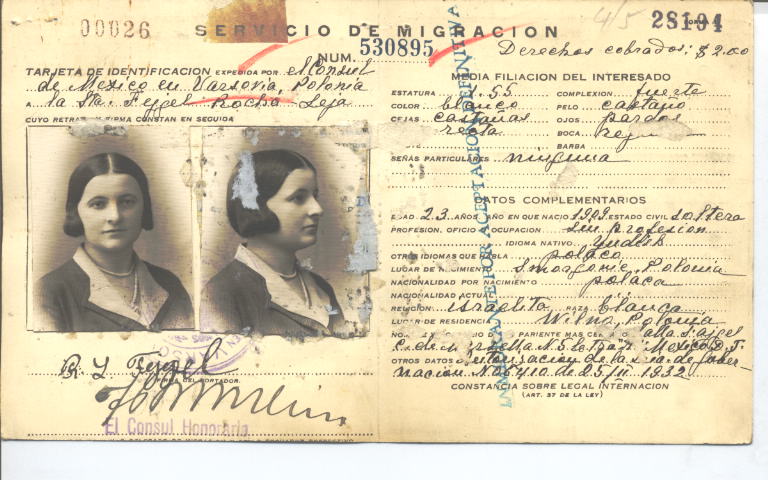 00026
28104
SERVICIO DE MIGRACION
NUM. 530895
Derechos cobrados: $2.00
TARJETA DE IDENTIFICACION EXPEDIDA POR el Consul
de Mexico en Varsovia, Polonia
a la Sta. Fejgel Rocha Leja
CUYO RETRATO Y FIRMA CONSTAN EN SEGUIDA
R L Fejgel
FIRMA DEL PORTADOR.
El Consul Honorario
MEDIA FILIACION DEL INTERESADO
ESTATURA 1.55 COMPLEXION fuerte
COLOR blanco PELO castaño
CEJAS castañas OJOS pardos
recta BOCA
BARBA
SEÑAS PARTICULARES ninguna
DATOS COMPLEMENTARIOS
EDAD 23 AÑOS, AÑO EN QUE NACIO 1909 ESTADO CIVIL soltera
PROFESION, OFICIO U OCUPACION sin profesion
IDIOMA NATIVO Yudish
OTROS IDIOMAS QUE HABLA polaco
LUGAR DE NACIMIENTO Smorgonie, Polonia
NACIONALIDAD POR NACIMIENTO polaca
NACIONALIDAD ACTUAL
RELIGION israelita RAZA blanca
LUGAR DE RESIDENCIA Wilno, Polonia
PARIENTE MAS
Mexico D.F.
OTROS DATOS autorizacion de la Sria de Gober-
nacion No 6410 de 25/II 1932
CONSTANCIA SOBRE LEGAL INTERNACION
(ART. 37 DE LA LEY)
INMIGRANTE POR ACEPTACION DEFINITIVA